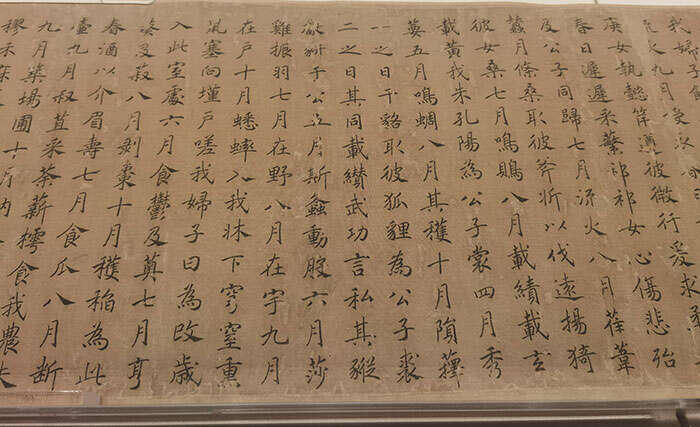 我婦子
火九月受衣
庚女執懿筐遵彼微行爰求柔
春日遲遲采蘩祁祁女心傷悲殆
及公子同歸七月流火八月萑葦
蠶月條桑取彼斧斨以伐遠揚猗
彼女桑七月鳴鵙八月載績載玄
載黃我朱孔陽為公子裳四月秀
葽五月鳴蜩八月其穫十月隕蘀
一之日于貉取彼狐狸為公子裘
二之日其同載纘武功言私其豵
獻豜于公五月斯螽動股六月莎
雞振羽七月在野八月在宇九月
在戶十月蟋蟀入我牀下穹窒熏
鼠塞向墐戶嗟我婦子曰為改歲
入此室處六月食鬱及薁七月亨
葵及菽八月剝棗十月穫稻為此
春酒以介眉壽七月食瓜八月斷
壺九月叔苴采荼薪樗食我農夫
九月築場圃十月納
穋禾麻